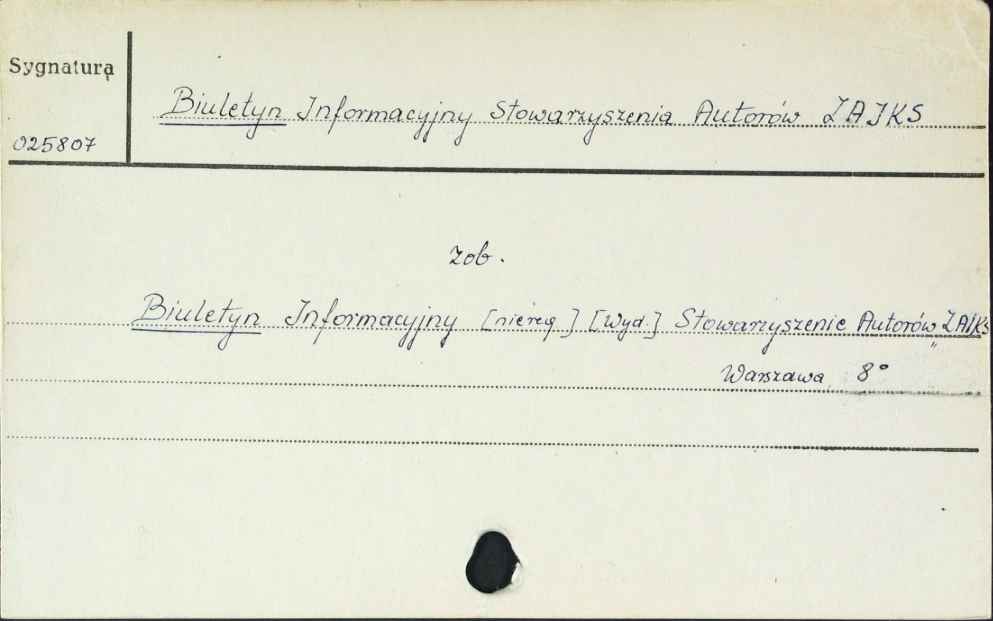 Sygnatura
Biuletyn Informacyjny Stowarzyszenia Autorów ZAIKS
025807
zob.
Biuletyn Informacyjny [niereg.] [Wyd.] Stowarzyszenie Autorów „ZAiKS"
Warszawa 8°